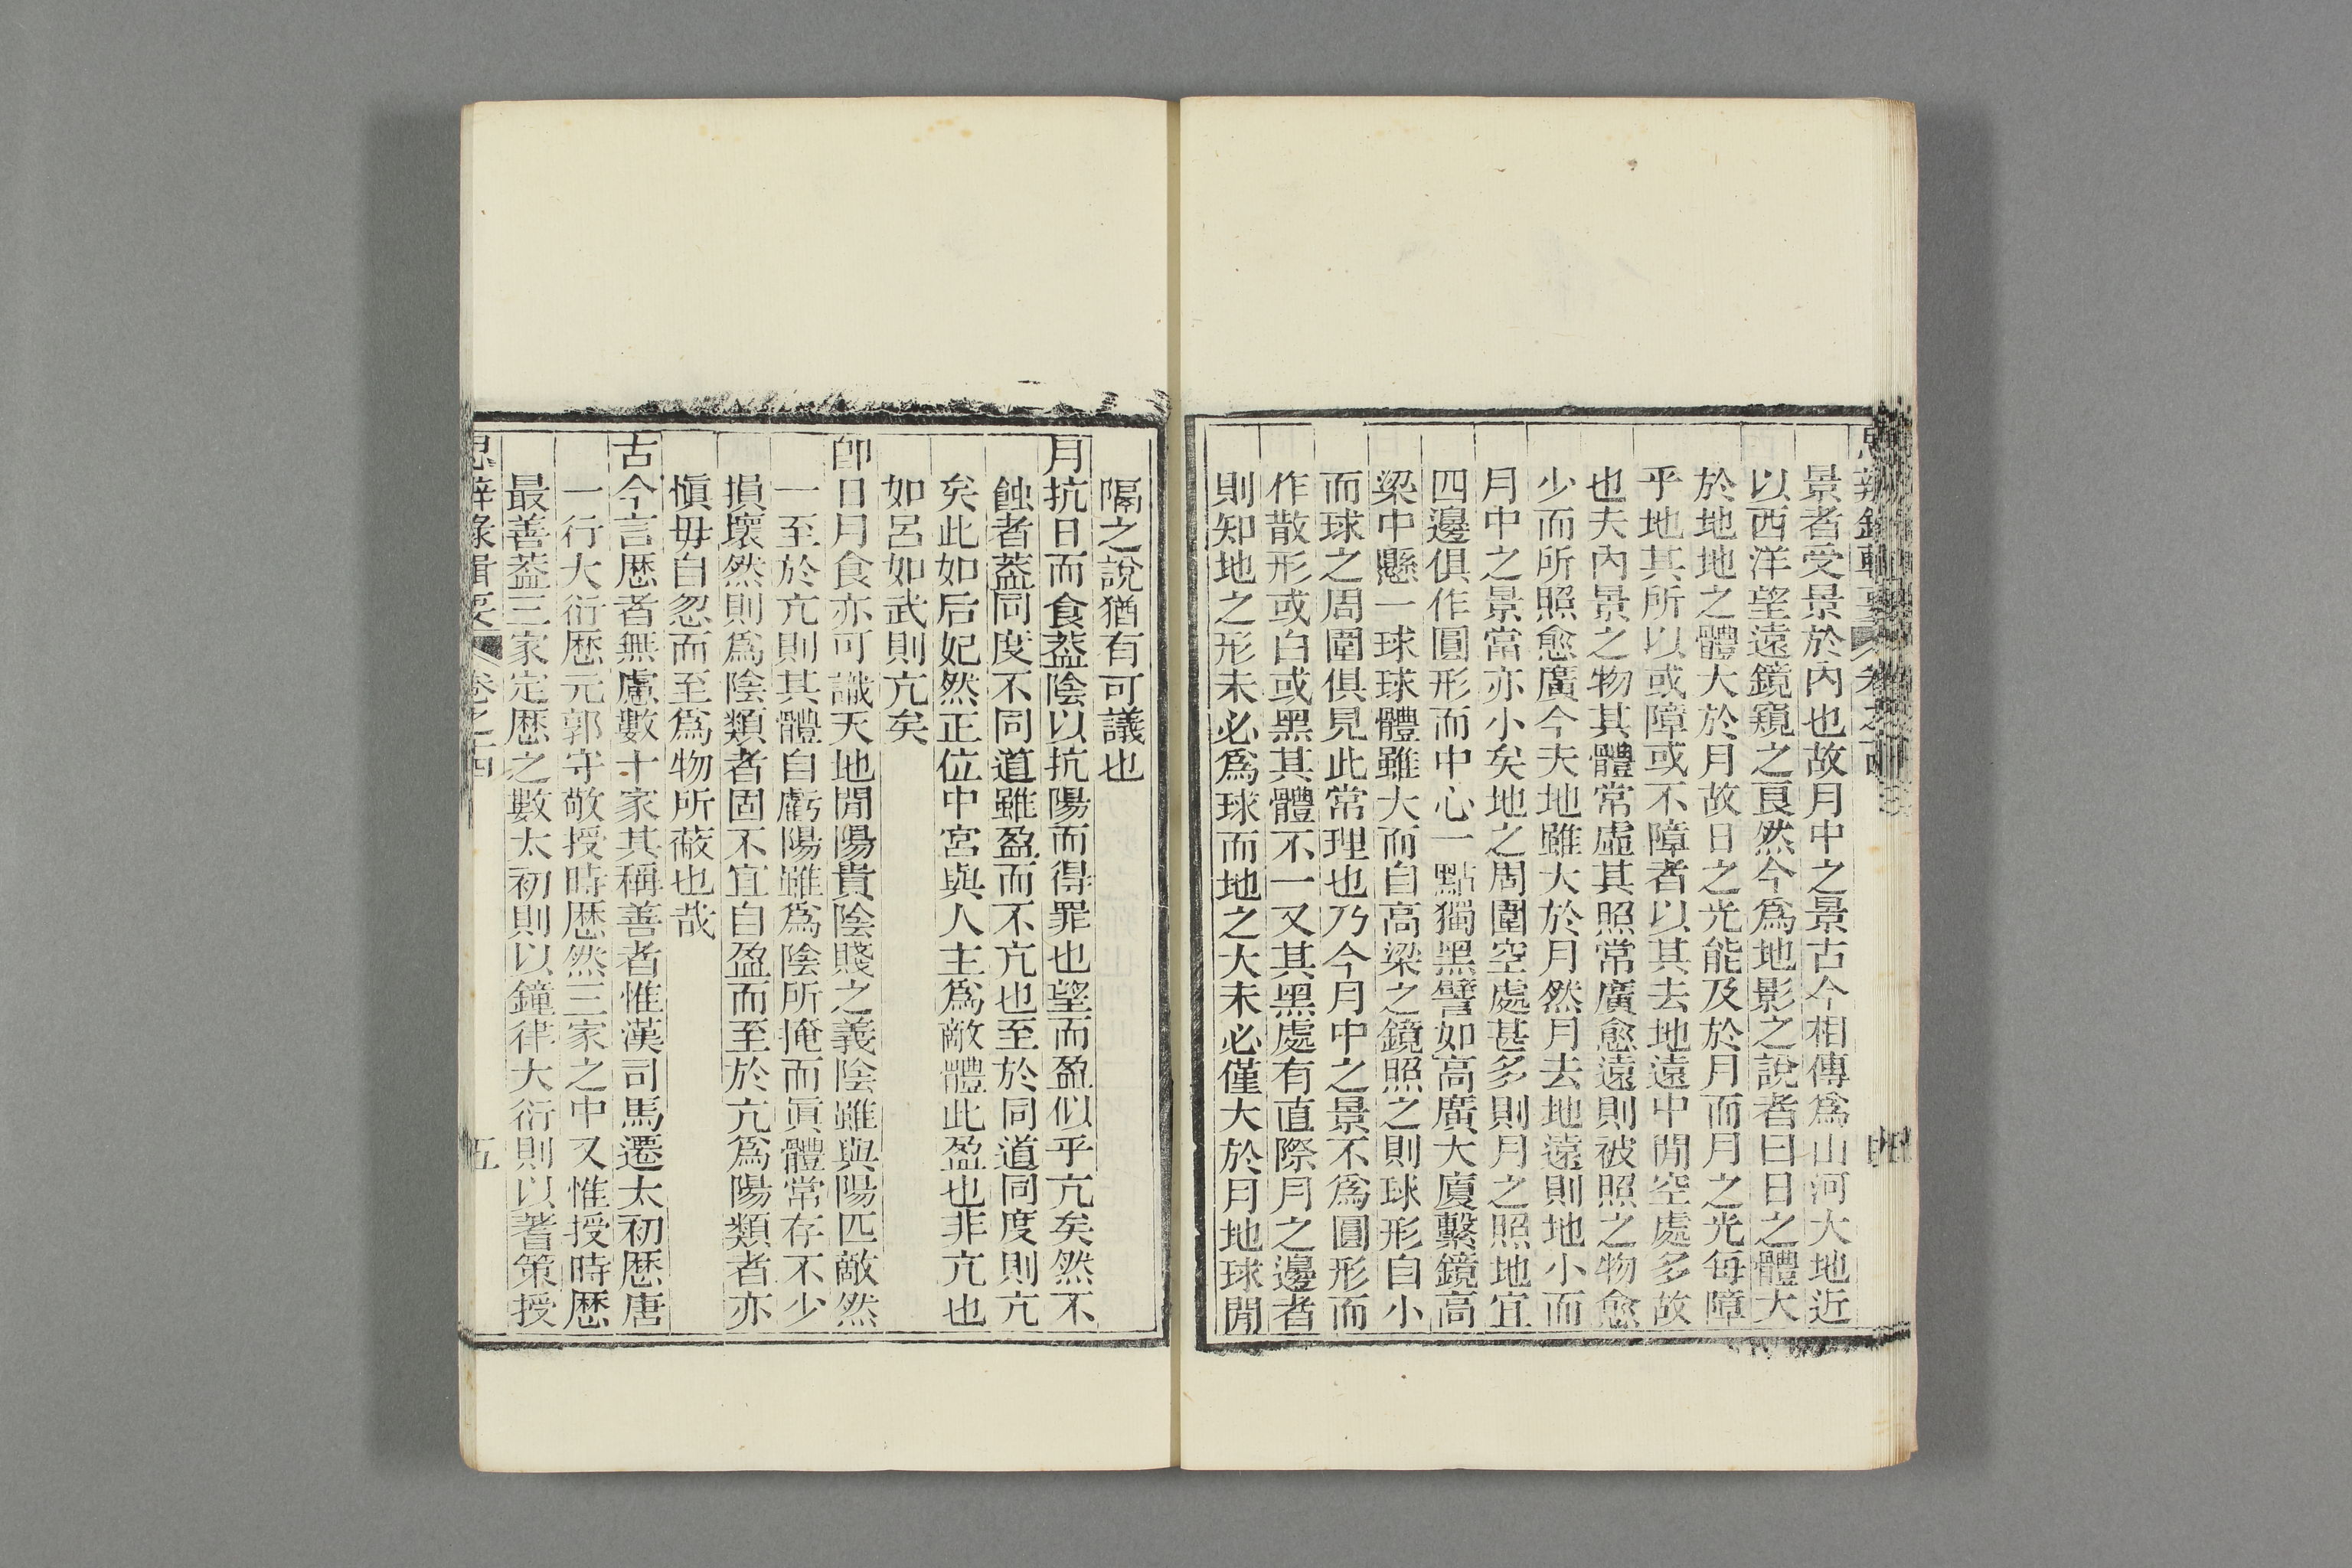 思辨錄輯要 卷之十四
景者受景於內也故月中之景古今相傳爲山河大地近
以西洋望遠鏡窺之良然今爲地影之說者曰日之體大
於地地之體大於月故日之光能及於月而月之光每障
乎地其所以或障或不障者以其去地遠中閒空處多故
也夫內景之物其體常虛其照常廣愈遠則被照之物愈
少而所照愈廣今夫地雖大於月然月去地遠則地小而
月中之景當亦小矣地之周圍空處甚多則月之照地宜
四邊俱作圓形而中心一點獨黑譬如高廣大廈繫鏡高
梁中懸一球球體雖大而自高梁之鏡照之則球形自小
而球之周圍俱見此常理也乃今月中之景不爲圓形而
作散形或白或黑其體不一又其黑處有直際月之邊者
則知地之形未必爲球而地之大未必僅大於月地球閒
隔之說猶有可議也
月抗日而食葢陰以抗陽而得罪也望而盈似乎亢矣然不
蝕者葢同度不同道雖盈而不亢也至於同道同度則亢
矣此如后妃然正位中宮與人主爲敵體此盈也非亢也
如呂如武則亢矣
卽日月食亦可識天地閒陽貴陰賤之義陰雖與陽匹敵然
一至於亢則其體自虧陽雖爲陰所掩而眞體常存不少
損壞然則爲陰類者固不宜自盈而至於亢爲陽類者亦
愼毋自忽而至爲物所蔽也哉
古今言厯者無慮數十家其稱善者惟漢司馬遷太初厯唐
一行大衍厯元郭守敬授時厯然三家之中又惟授時厯
最善葢三家定厯之數太初則以鐘律大衍則以蓍策授
思辨錄輯要 卷之十四 五